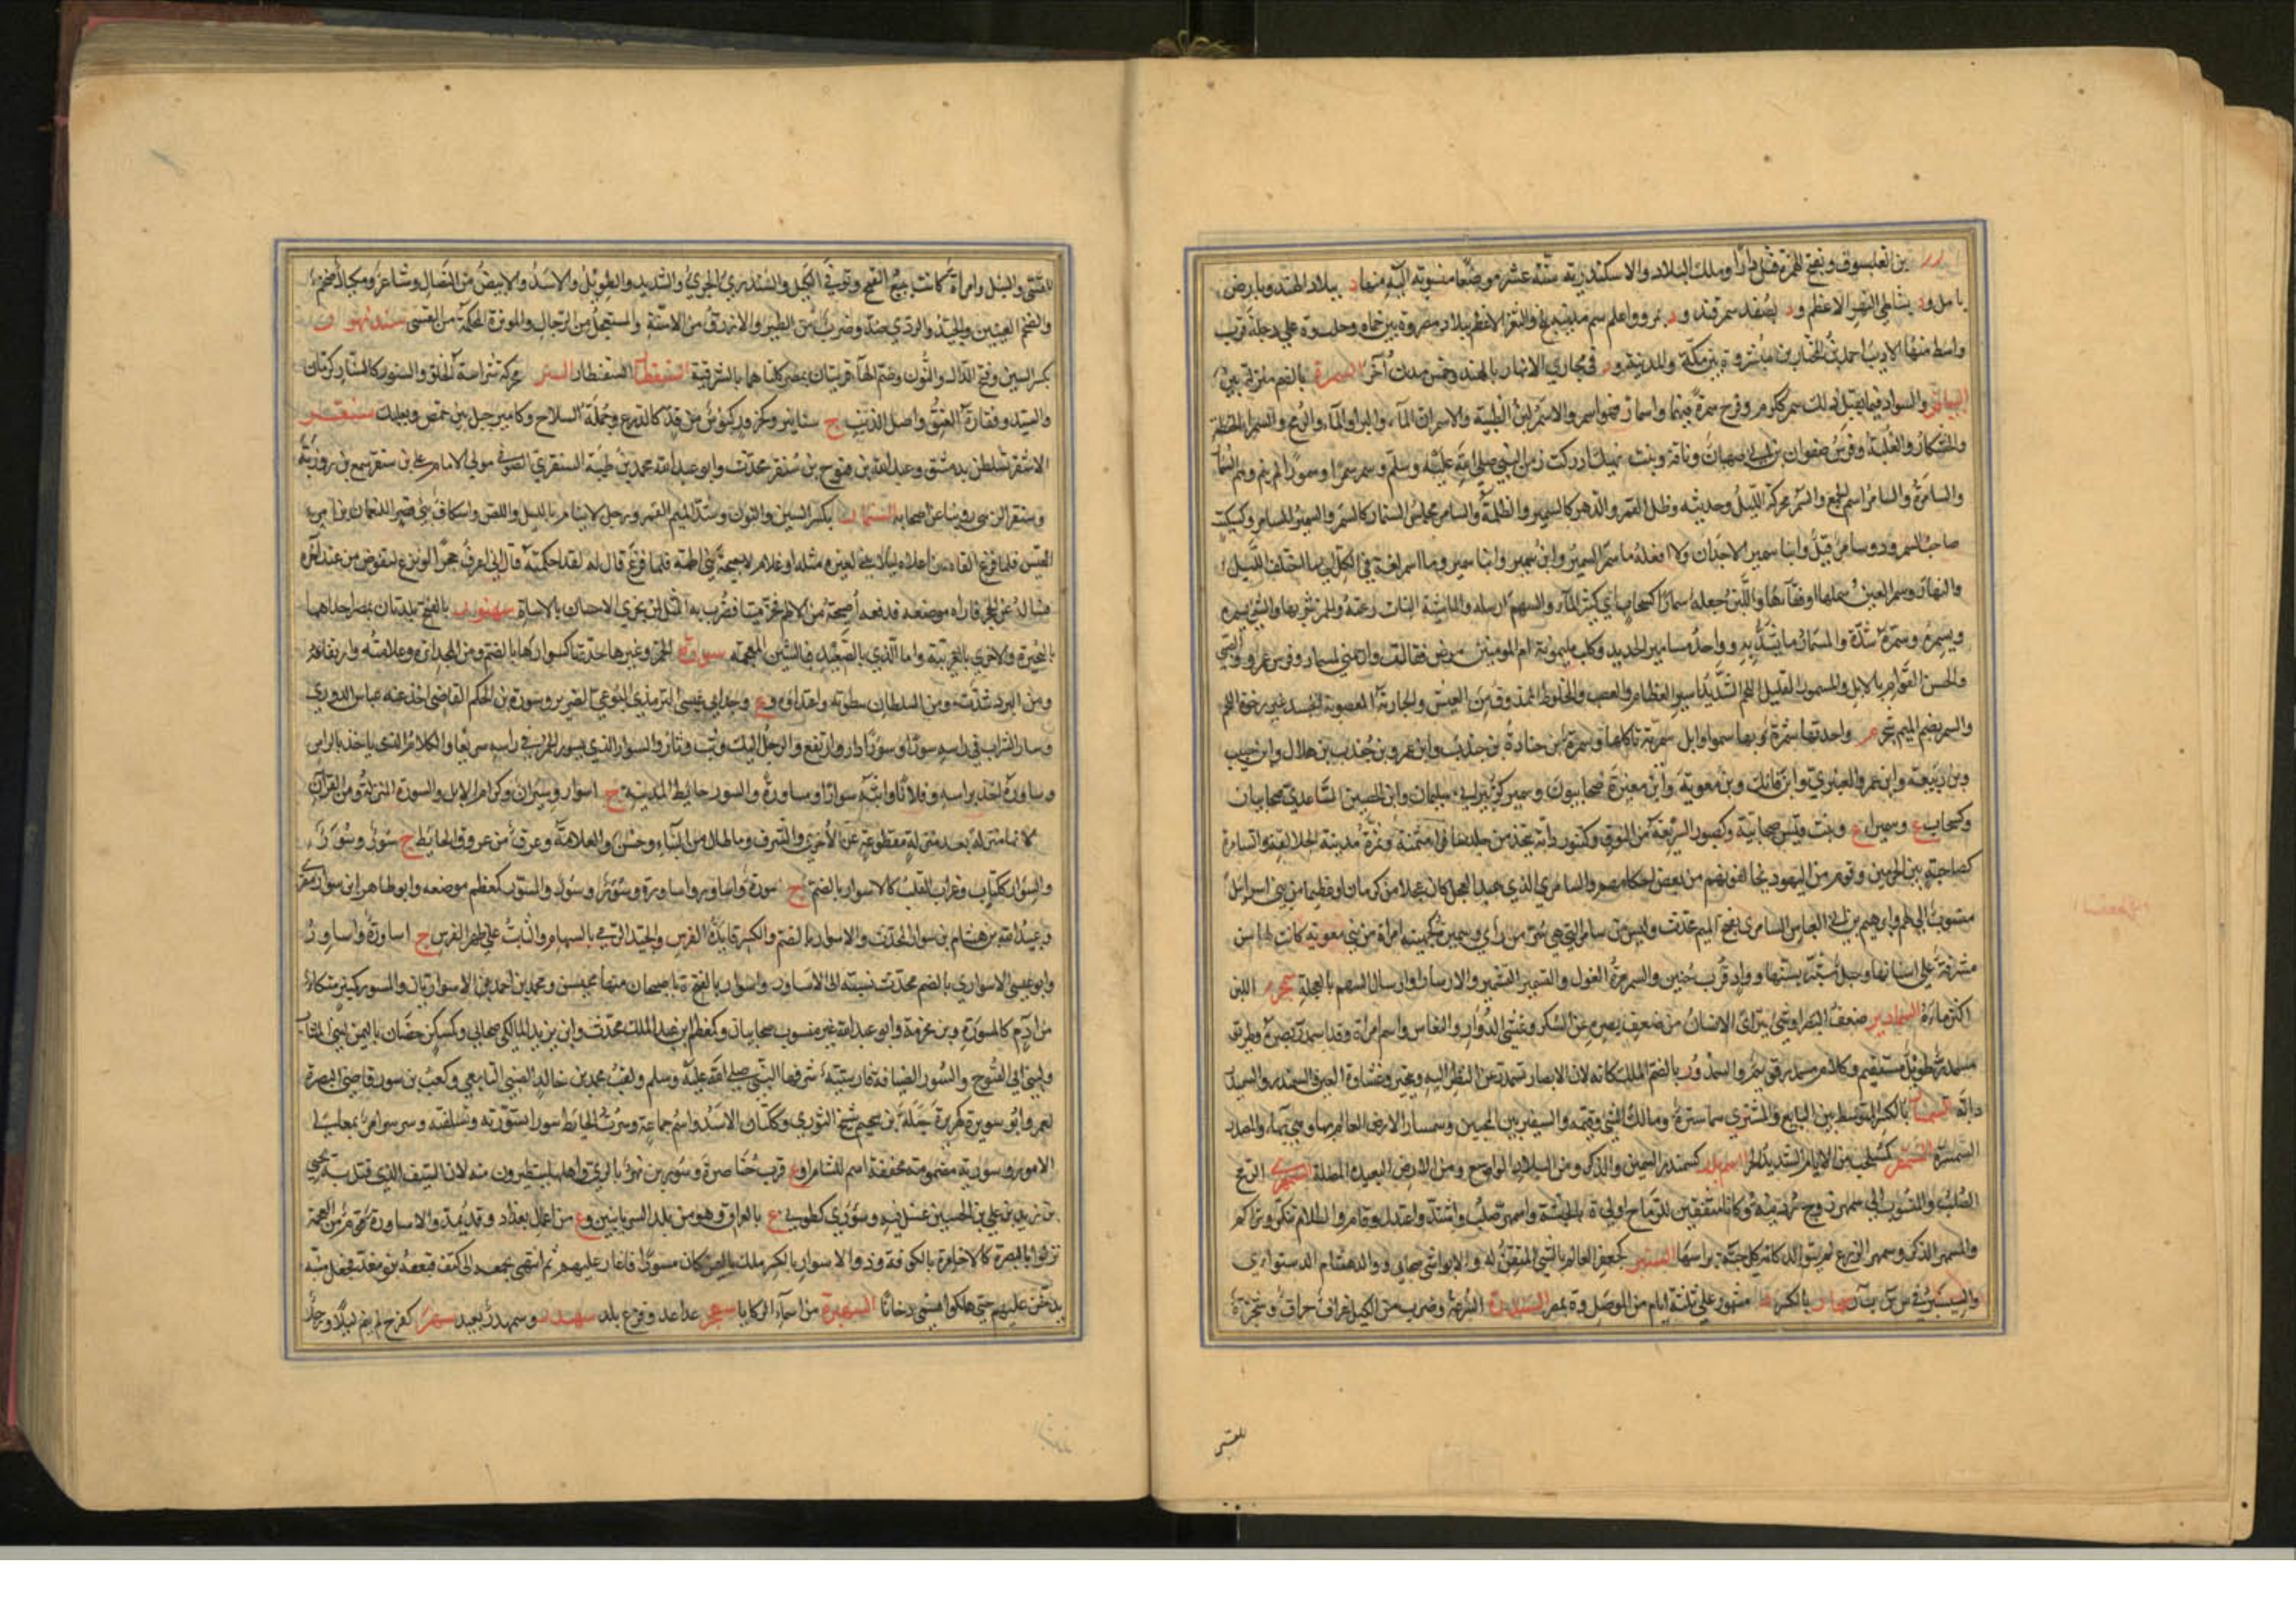 بن تعلبسوف وبفتح الهمزة قتل دارا وملك البلاد والاسكندرية ستة عشر موضعا منسوبة اليه منها د ببلاد الهند ود بارض
بابل ود بشاطئ النهر الاعظم ود بصغد سمرقند ود بمرو واسم مدينة بلخ والثغر الاعظم ببلاد مصر وة بين حماة وحلب وة على دجلة قرب
واسط منها الاديب احمد بن المختار بن مبشر وة بين مكة والمدينة ود في مجاري الانهار بالهند وخمس مدن اخر السمرة بالضم منزلة بين
البياض والسواد فيما يقبل ذلك سمر ككرم وفرح سمرة فيهما واسمار فهو اسمر والاسمر لبن الظبية والاسمران الماء والبر او الماء والرمح والسمراء الحنطة
والخشكار والعلبة وفرس صفوان بن ابي صهبان وناقة وبنت نهيك ادركت زمن النبي صلى الله عليه وسلم وسمر سمرا وسمورا لم ينم وهم السمار
والسامرة والسامر اسم الجمع والسمر محركة الليل وحديثه وظل القمر والدهر كالسمير والظلمة والسامر مجلس السمار كالسمر والسمير المسامر وكسكيت
صاحب السمر ودوسامر قيل وابنا سمير الاجدان ولا افعله ما سمر السمير وابن سمير وابنا سمير وما اسمر لغة في الكل اي ما اختلف الليل
والنهار وسمر العين سملها او فقأها واللبن جعله سمارا كسحاب اي كثير الماء والسهم ارسله والماشية النبات رعته والخمر شربها والشئ يسمره
ويسمره وسمره شده والمسمار ما يشد به وواحد مسامير الحديد وكلب لميمونة ام المؤمنين مرض فقالت وارحمتي لمسمار وفرس عمرو الضبي
والحسن القوام بالابل والمسمور القليل اللحم الشديد اسر العظام والعصب والمخلوط الممذوق من العيش والجارية المعصوبة الجسد غير رخوة اللحم
والسمر بضم الميم شجر م واحدتها سمرة وبها سموا وابل سمرية تاكلها وسمرة بن جنادة بن جندب وابن عمرو بن جندب بن هلال وابن حبيب
وبن ربيعة وابن عمرو العنبري وابن فاتك وبن معوية وابن معير صحابيون وسمير كزبير ابو سليمان وابن الحصين الساعدي صحابيان
وكسحاب ع وسميراء ع وبنت قيس صحابية وكصبور السريعة من النوق وكتنور دابة تتخذ من جلدها فراء مثمنة وسمورة مدينة الجلالقة والسامرة
كصاحبة ة بين الحرمين وقوم من اليهود يخالفونهم من بعض احكامهم والسامري الذي عبد العجل كان علجا من كرمان او عظيما من بني اسرائل
منسوب الى لهم وابراهيم بن ابي العباس السامري بفتح الميم محدث وليس من سامرا التي هي سر من راى وسميرة كجهينة امراة من بني معوية كانت لها سن
مشرفة على اسنانها وجبل شبه بسنها وواد قرب حنين والسمرمرة الغول والتسمير التشمير والارسال او ارسال السهم بالعجلة سمجر اللبن
اكثر ماءه السمادير ضعف البصر او شئ يتراءى للانسان من ضعف بصره عن السكر وغشي الدوار والنعاس واسم امراة وقد اسمدر بصره وطريق
مسمدر طويل مستقيم وكلام مسمدر قويم والسمدور بالضم الملك كانه لان الابصار تسمدر عن النظر اليه وتتحير وغشاوة العين والسمندر والسميدر
دابة السمسار بالكسر المتوسط بين البايع والمشتري سماسرة ومالك الشئ وقيمه والسفير بين المحبين وسمسار الارض العالم بها وهي بهاء والمصدر
السمسرة السمغر كشمخر من الايام الشديد الحر اسمهد كسمندر السمين والذكر ومن البلاد الواسع ومن الارض البعيدة المضلة السمهري الرمح
الصلب والمنسوب الى سمهر زوج ردينة وكانا مثقفين للرماح او الى ة بالحبشة واسمهر صلب واشتد واعتدل وقام والظلام تنكر وتراكم
والمسمهر الذكر وسمهر الزرع لم يتوالد كانه كل حبة براسها السنبر كجعفر العالم بالشئ المتقن له والابواشي صحابي ووالد هشام الدستواءي
والسيسنبر في س ي س ب ر سنجار بالكسر د مشهور على ثلثة ايام من الموصل وة بمصر السندرة السرعة وضرب من الكيل غراف جراف وشجرة
للقسي
للقسي والنبل وامراة كانت تبيع القمح وتوفي الكيل والسندري الجري والشديد والطويل والاسد والابيض من النصال وشاعر ومكيال ضخم
والضخم العينين والجيد والردي ضد وضرب من الطير والازرق من الاسنة والمستعجل من الرجال والموتزة المحكمة من القسي سندنهور
بكسر السين وفتح الدال والنون وضم الهاء قريتان بمصر كلتاهما بالشرقية السنقطار السنر محركة شراسة الخلق والسنور كالسنار كرمان
والسيد وفقارة العنق واصل الذنب ج سنانير وكحزور لبوس من قد كالدرع وجملة السلاح وكامير جبل بين حمص وبعلبك سنقر
الاشقر تسلطن بدمشق وعبد الله بن فتوح بن سنقر محدث وابو عبد الله محمد بن طيبة السنقري الصوفي مولى الامام علي بن سنقر سمع بن روزبة
وسنقر الزيني روينا عن اصحابه السنمار بكسر السين والنون وشد الميم القمر ورجل لا ينام بالليل واللص واسكاف بنى قصرا للنعمان بن امرئ
القيس فلما فرغ القاه من اعلاه ليلا يبني لغيره مثله او غلام لاحيحة بنى اطمه فلما فرغ قال له لقد احكمته قال اني لاعرف حجرا لو نزع لتقوض من عند اخره
فساله عن الحجر فاراه موضعه فدفعه احيحة من الاطم فخر ميتا فضرب به المثل لمن يجزي الاحسان بالاساة سنهور بالفتح بلدتان بمصر احداهما
بالبحيرة والاخرى بالغربية واما الذي بالصعيد فبالشين المعجمة سورة الخمر وغيرها حدتها كسوارها بالضم ومن المجد اثره وعلامته وارتفاعه
ومن البرد شدته ومن السلطان سطوته واعتداؤه وع وجد ابي عيسى الترمذي البوغي الضرير وسورة بن الحكم القاضي اخذ عنه عباس الدوري
وسار الشراب في راسه سورا وسؤرا دار وارتفع والرجل اليك وثب وثار والسوار الذي تسور الخمر في راسه سريعا والكلام الذي ياخذ بالراس
وساوره اخذ براسه وفلانا واثبه سوارا ومساورة والسور حايط المدينة ج اسوار وسيران وكرام الابل والسورة المنزلة ومن القران
م لانها منزلة بعد منزلة مقطوعة عن الاخرى والشرف وما طال من البناء وحسن والعلامة وعرق من عروق الحايط ج سور وسور
والسوار ككتاب وغراب القلب كالاسوار بالضم ج سورة واساور واساورة وسور وسؤر والمسور كمعظم موضعه وابو طاهر ابن سوار مقري
وعبيد الله بن هشام بن سوار المحدث والاسوار بالضم والكسر قايد الفرس والجيد الرمي بالسهام والثابت على ظهر الفرس ج اساورة واساور
وابو عيسى الاسواري بالضم محدث نسبة الى الاساورة واسوار بالفتح ة باصبهان منها محيسن ومحمد بن احمد الاسواريان والمسور كمنبر متكا
من ادم كالمسورة وبن مخرمة وابو عبد الله غير منسوب صحابيان وكمعظم ابن عبد الملك محدث وابن يزيد المالكي صحابي وكسكر حصنان باليمن لبني المنتاب
ولبني ابي الفتوح والسور الضيافة فارسية شرفها النبي صلى الله عليه وسلم ولقب محمد بن خالد الضبي التابعي وكعب بن سور قاضي البصرة
لعمر وابو سويرة كهريرة جبلة بن سحيم شيخ الثوري وككتان الاسد واسم جماعة وسرت الحايط سورا وتسورته وتسلقته وسر سر امر بمعالي
الامور وسورية مضمومة مخففة اسم للشام او ع قرب خناصرة وسورين نهر بالري واهلها يتطيرون منه لان السيف الذي قتل به يحيى
بن زيد بن علي بن الحسين غسل فيه وسورى كطوبى ع بالعراق وهو من بلد السريانيين وع من اعمال بغداد وقد يمد والاساورة قوم من العجم
نزلوا بالبصرة كالاحامرة بالكوفة وذو الاسوار بالكسر ملك باليمن كان مسورا فاغار عليهم ثم انتهى بجمعه الى كهف فتبعه بنو معد فجعل منبه
يدخن عليهم حتى هلكوا فسمي دخانا السهبرة من اسماء الركايا سهجر عدا عدو فزع بلد سهدر وسمهدر بعيد سهر كفرح لم ينم ليلا ورجل